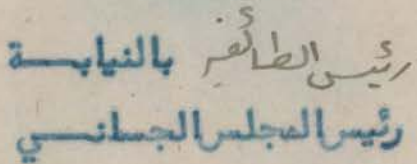 رئيس الطائفة بالنيابــة
رئيس المجلس الجسمانــــي